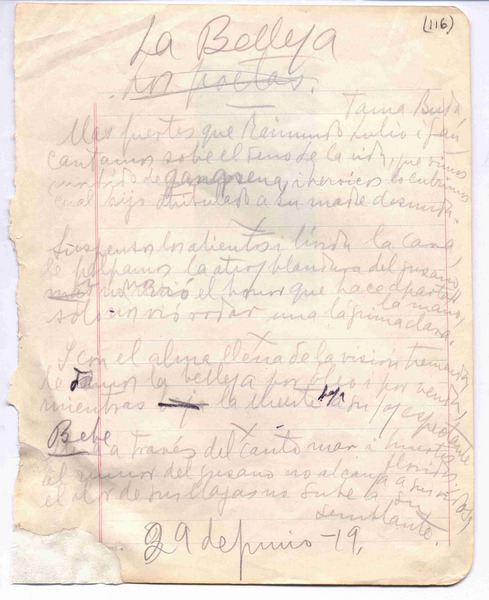 (116)
La Belleza
Los poetas.
Mas fuertes que Raimundo Lulio i
cantamos sobre el seno de la vida, que vimos
mordido de gangrena, i heroicos lo cubrimos
cual hijo atribulado a su madre desnuda.
Suspensos los alientos i lívida la cara,
le palpamos la atroz blandura del gusano,
el horror que hace apartar
la mano,
sólo un vió rodar una lágrima clara.
I con el alma llena de la visión tremenda
le damos la belleza por
mientras la muerte
Bebe a través del canto mar i huertos
floridos,
al rumor del gusano no alcanza a sus oídos,
el olor de sus llagas no sube a su
semblante.
29 de junio - 19,